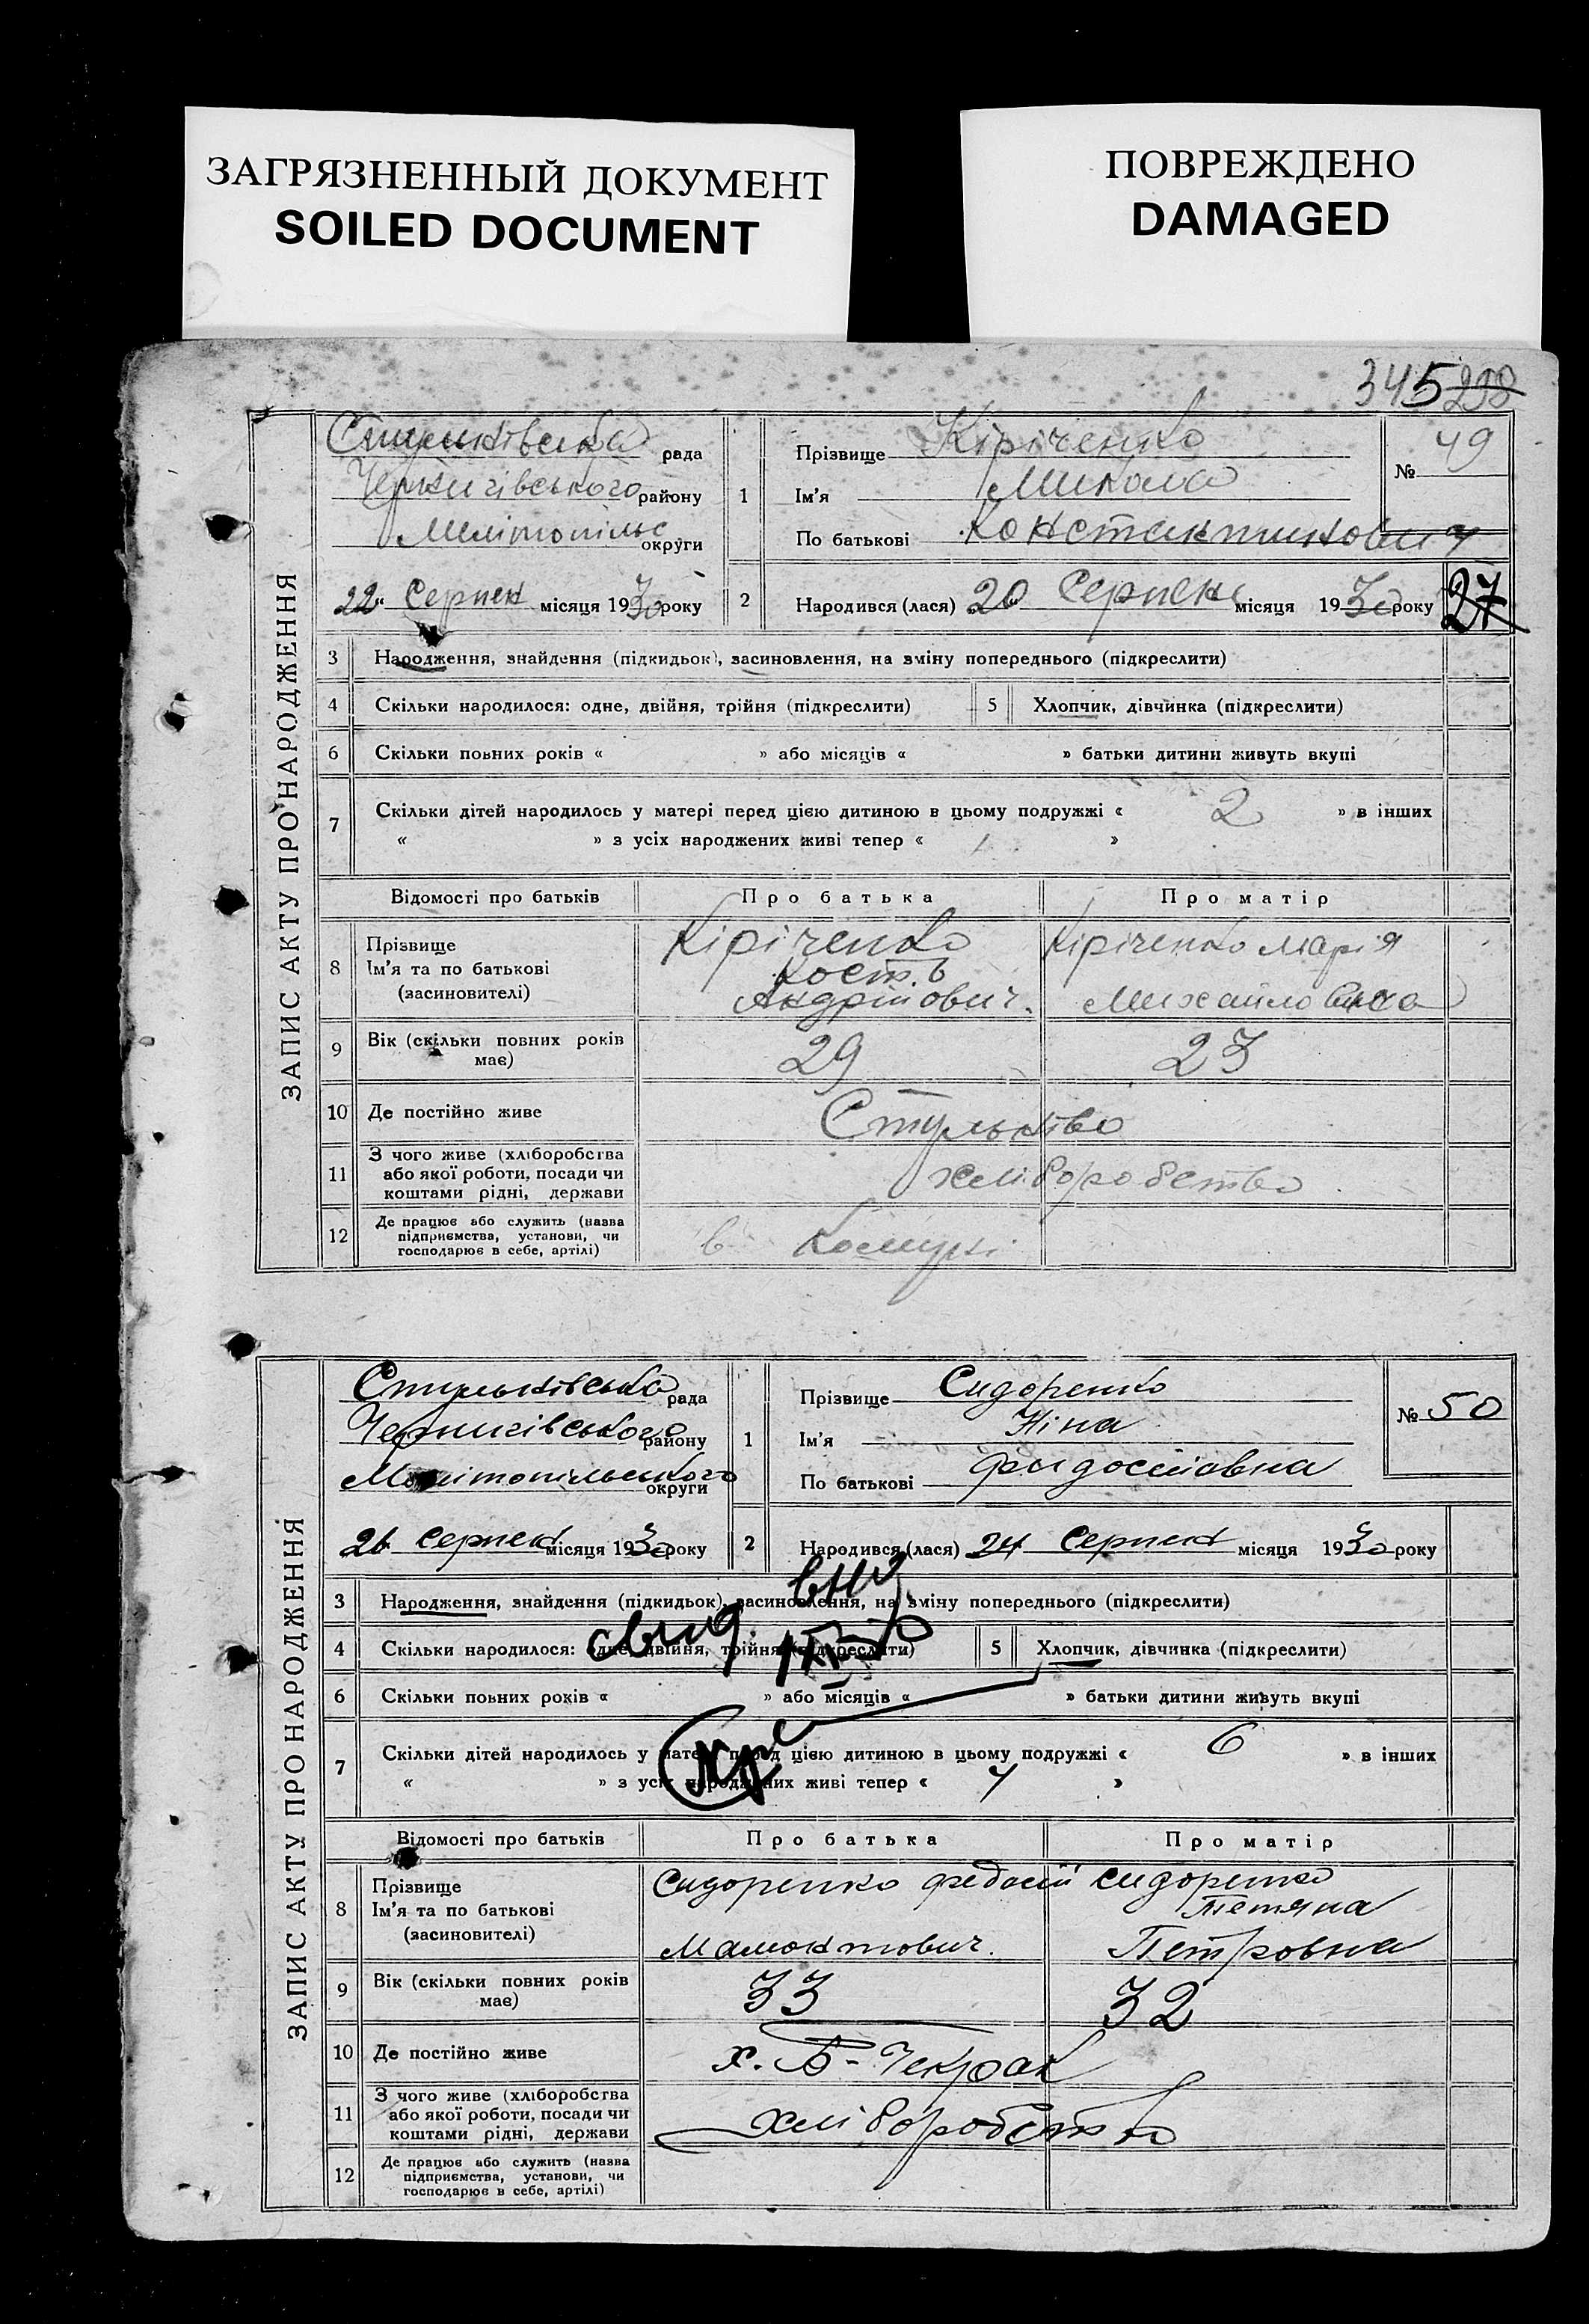 ЗАГРЯЗНЕННЫЙ ДОКУМЕНТ
SOILED DOCUMENT
ПОВРЕЖДЕНО
DAMAGED
345 298
ЗАПИС АКТУ ПРО НАРОДЖЕННЯ
Стульнівська рада
Чернигівського району
Мелітопільс округи
22 Серпен місяця 1930 року
1 Прізвище Кіріченко
Ім'я Микола
По батькові Константинович
№ 49
2 Народився (лася) 20 Серпень місяця 1930 року
27
3 Народження, знайдення (підкидьок), засиновлення, на зміну попереднього (підкреслити)
4 Скільки народилося: одне, двійня, трійня (підкреслити) 5 Хлопчик, дівчинка (підкреслити)
6 Скільки повних років « » або місяців « » батьки дитини живуть вкупі
7 Скільки дітей народилось у матері перед цією дитиною в цьому подружжі « 2 » в інших
« » з усіх народжених живі тепер « 1 »
Відомості про батьків Про батька Про матір
8 Прізвище
Ім'я та по батькові
(засиновителі)
Кіріченко
Кост.
Андрійович.
Кіріченко Марія
Михайловна
9 Вік (скільки повних років має) 29 23
10 Де постійно живе Стульнево
11 З чого живе (хліборобства
або якої роботи, посади чи
коштами рідні, держави
хліборобство
12 Де працює або служить (назва
підприємства, установи, чи
господарює в себе, артілі)
в Комуні
ЗАПИС АКТУ ПРО НАРОДЖЕННЯ
Стульнівсько рада
Чернигівського району
Мелітопільского округи
26 Серпен місяця 1930 року
1 Прізвище Сидоренко
Ім'я Ніна
По батькові
№ 50
2 Народився (лася) 24 Серпен місяця 1930 року
3 Народження, знайдення (підкидьок), засиновлення, на зміну попереднього (підкреслити)
4 Скільки народилося: одне, двійня, трійня (підкреслити) 5 Хлопчик, дівчинка (підкреслити)
6 Скільки повних років « » або місяців « » батьки дитини живуть вкупі
7 Скільки дітей народилось у матері перед цією дитиною в цьому подружжі « 6 » в інших
« » з усіх народжених живі тепер « 4 »
Відомості про батьків Про батька Про матір
8 Прізвище
Ім'я та по батькові
(засиновителі)
Сидоренко Федосій
Мамонтович.
Сидоренко
Тетяна
Петровна
9 Вік (скільки повних років має) 33 32
10 Де постійно живе х. Б-Чекрак
11 З чого живе (хліборобства
або якої роботи, посади чи
коштами рідні, держави
хліборобство
12 Де працює або служить (назва
підприємства, установи, чи
господарює в себе, артілі)